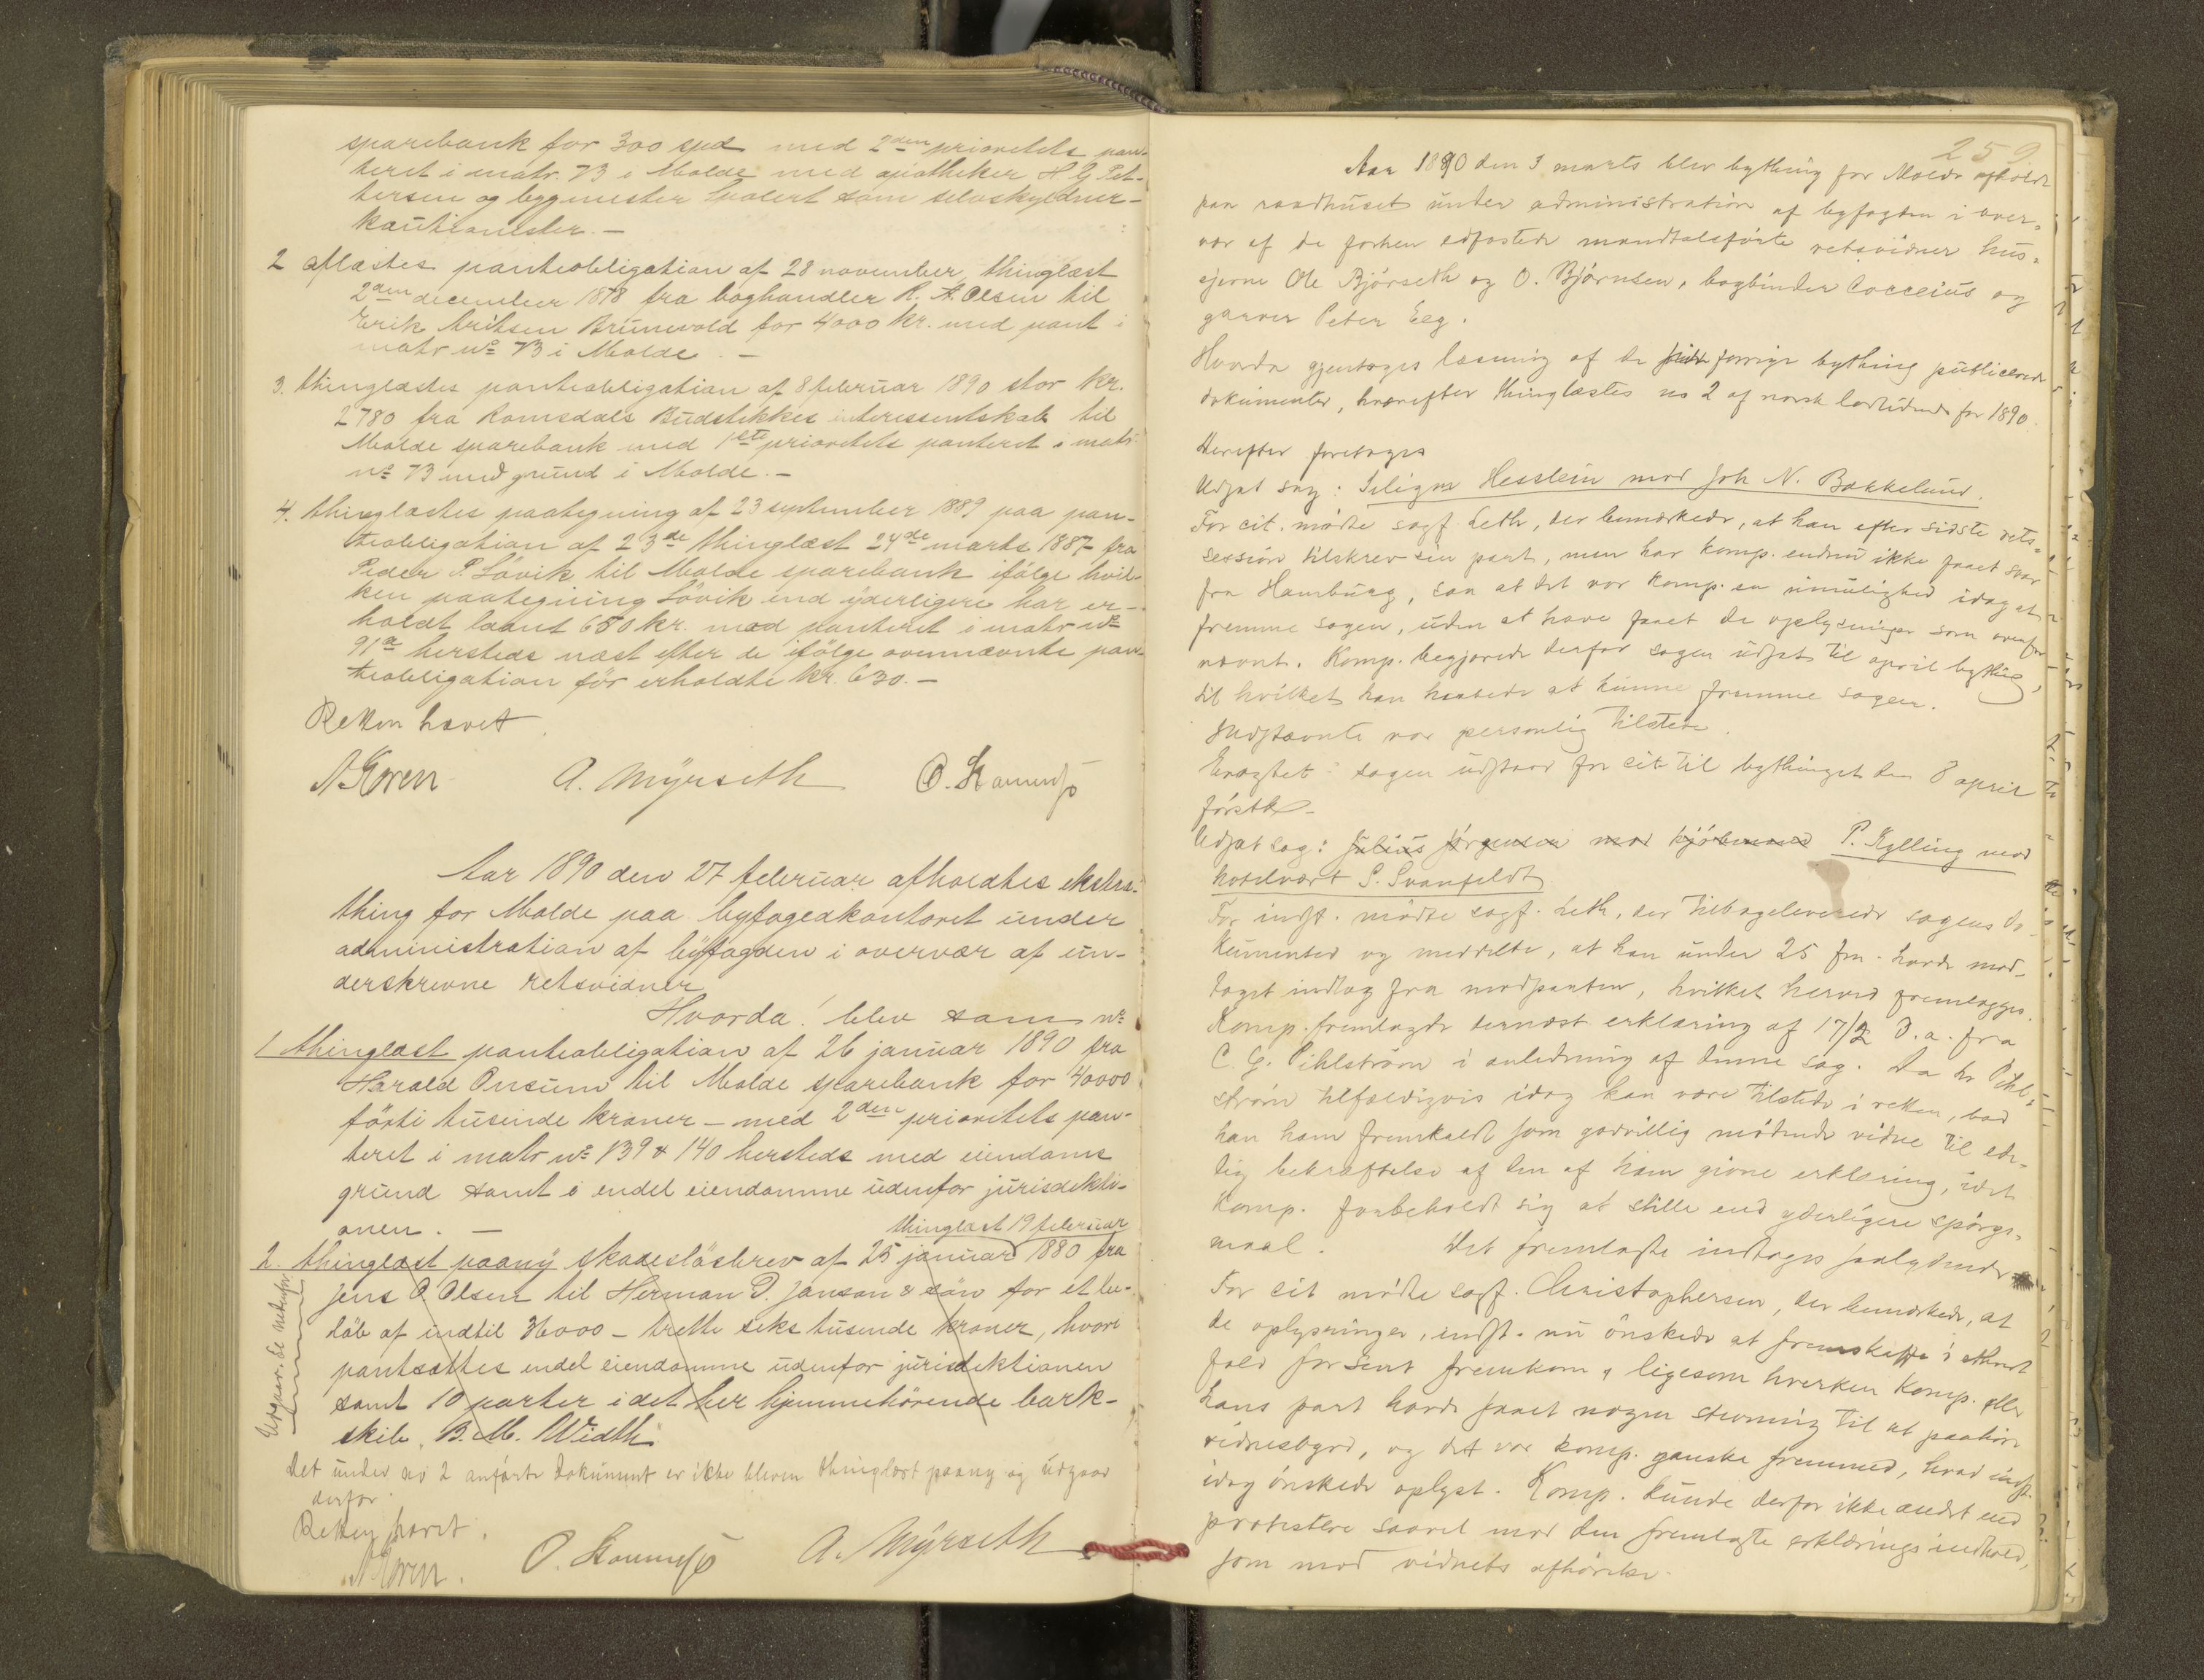 sparebank for 300 spd med 2den prioritets pan-
teret i matr. 73 i Molde med apotheker H G Pet-
tersen og bygmester Evalert som selvskyldner-
kautionister. —
2 aflæstes panteobligation af 28 november, thinglæst
2den december 1878 fra boghandler R. A. Olsen til
Eerik Eriksen Brunvold for 4000 kr. med pant i
matr no 73 i Molde. —
3. thinglæstes panteobligation af 8 februar 1890 stor kr.
2780 fra Romsdals Budstikkes interessentskab til
Molde sparebank med 1ste prioritets panteret i matr
no 73 med grund i Molde. —
4. thinglæstes paategning af 23 september 1889 paa pan-
teobligation af 23de thinglæst 24de marts 1887 fra
Peder P. Løvik til Molde sparebank ifølge hvil-
ken paategning Løvik end yderligere har er-
holdt laant 650 kr. mod panteret i matr no
91a hersteds næst efter de ifølge ovennævnte pan-
teobligation før erholdte kr. 630. —
Retten hævet.
N Koren A. Myrseth O. Stammesø
Aar 1890 den 27 februar afholdtes ekstra-
thing for Molde paa byfogedkontoret under
administration af byfogden i overvær af un-
derskrevne retsvidner
Hvorda! blev som no
1 thinglæst panteobligation af 26 januar 1890 fra
Harald Onsum til Molde sparebank for 40000
førti tusinde kroner — med 2den prioritets pan-
teret i matr no 139 & 140 hersteds med eiendoms
grund samt i endel eiendomme udenfor jurisdikti-
onen. —
thinglæst 19 februar
2. thinglæst paany skadesløsbrev af 25 januar 1880 fra
Jens O. Olsen til Herman D. Janson & søn for et be-
løb af indtil 36000 — tretti seks tusende kroner, hvori
pantsattes endel eiendomme udenfor jurisdiktionen
samt 10 parter i det her hjemmehørende bark-
skib "B. M. Width".
Udgaar. Se nedenfor
Det under no 2 anførte dokument er ikke bleven thinglæst paany og udgaar
derfor.
Retten hævet.
N Koren. O. Stammesø A. Myrseth
259.
Aar 1890 den 3 marts blev bything for Molde afholdt
paa raadhuset under administration af byfogden i over-
vær af de forhen edfæstede mandtalsførte retsvidner hus-
ejerne Ole Bjørseth og O. Bjørnsen, bogbinder Cocceius og
garver Peter Eeg.
Hvorda gjentoges læsning af de sidst forrige bything publicerede
dokumenter, hvorefter thinglæstes no 2 af norsk lovtidende for 1890.
Derefter foretoges
Udsat sag: Seligm Hesslein mod Joh N. Bakkelund.
For cit. mødte sagf. Leth, der bemærkede, at han efter sidste rets-
session tilskrev sin part, men har komp. endnu ikke faaet svar
fra Hamburg, saa at det var komp. en umulighed idag at
fremme sagen, uden at have faaet de oplysninger som ovenfor
nævnt. Komp. begjærede derfor sagen udsat til april bything,
til hvilket han haabede at kunne fremme sagen.
Indstævnte var personlig tilstede.
Eragtet: sagen udstaar for cit til bythinget den 8 april
førstk —
Udsat sag: Julius Jørgensen mod kjøbmand P. Kylling mod
hotelvært S. Svanfeldt
For indst. mødte sagf. Leth, der tilbageleverede sagens do-
kumenter og meddelte, at han under 25 fm. havde mod-
taget indlæg fra modparten, hvilket herved fremlægges.
Komp. fremlagde dernæst erklæring af 17/2 d. a. fra
C. G. Pihlstrøm i anledning af denne sag. Da hr Pihl-
strøm tilfældigvis idag kan være tilstede i retten, bad
han ham fremkaldt som godvillig mødende vidne til ed-
lig bekræftelse af den af ham givne erklæring, idet
komp. forbeholdt sig at stille end yderligere spørgs-
maal. Det fremlagte indtages saalydende
For cit mødte sagf. Christophersen, der bemærkede, at
de oplysninger, indst. nu ønskede at fremskaffe i ethvert
fald for sent fremkom, ligesom hverken komp. eller
hans part havde faaet nogen stevning til at paahøre
vidnesbyrd, og det var komp. ganske fremmed, hvad indst.
idag ønskede oplyst. Komp. kunde derfor ikke andet end
protestere saavel mod den fremlagte erklærings indhold,
som mod vidnets afhørelse.